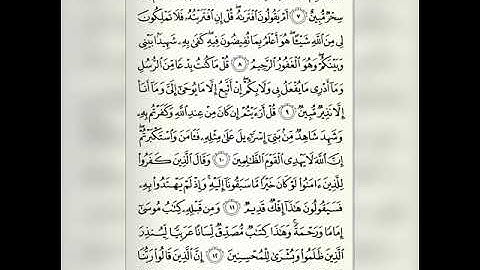 سِحْرٌ مُّبِينٌ ٧ أَمْ يَقُولُونَ ٱفْتَرَىٰهُ ۖ قُلْ إِنِ ٱفْتَرَيْتُهُۥ فَلَا تَمْلِكُونَ
لِى مِنَ ٱللَّهِ شَيْـًٔا ۖ هُوَ أَعْلَمُ بِمَا تُفِيضُونَ فِيهِ ۖ كَفَىٰ بِهِۦ شَهِيدًۢا بَيْنِى
وَبَيْنَكُمْ ۖ وَهُوَ ٱلْغَفُورُ ٱلرَّحِيمُ ٨ قُلْ مَا كُنتُ بِدْعًا مِّنَ ٱلرُّسُلِ
وَمَآ أَدْرِى مَا يُفْعَلُ بِى وَلَا بِكُمْ ۖ إِنْ أَتَّبِعُ إِلَّا مَا يُوحَىٰٓ إِلَىَّ وَمَآ أَنَا۠
إِلَّا نَذِيرٌ مُّبِينٌ ٩ قُلْ أَرَءَيْتُمْ إِن كَانَ مِنْ عِندِ ٱللَّهِ وَكَفَرْتُم بِهِۦ
وَشَهِدَ شَاهِدٌ مِّنۢ بَنِىٓ إِسْرَٰٓءِيلَ عَلَىٰ مِثْلِهِۦ فَـَٔامَنَ وَٱسْتَكْبَرْتُمْ ۖ
إِنَّ ٱللَّهَ لَا يَهْدِى ٱلْقَوْمَ ٱلظَّٰلِمِينَ ١٠ وَقَالَ ٱلَّذِينَ كَفَرُوا۟
لِلَّذِينَ ءَامَنُوا۟ لَوْ كَانَ خَيْرًا مَّا سَبَقُونَآ إِلَيْهِ ۚ وَإِذْ لَمْ يَهْتَدُوا۟ بِهِۦ
فَسَيَقُولُونَ هَٰذَآ إِفْكٌ قَدِيمٌ ١١ وَمِن قَبْلِهِۦ كِتَٰبُ مُوسَىٰٓ
إِمَامًا وَرَحْمَةً ۚ وَهَٰذَا كِتَٰبٌ مُّصَدِّقٌ لِّسَانًا عَرَبِيًّا لِّيُنذِرَ
ٱلَّذِينَ ظَلَمُوا۟ وَبُشْرَىٰ لِلْمُحْسِنِينَ ١٢ إِنَّ ٱلَّذِينَ قَالُوا۟ رَبُّنَا